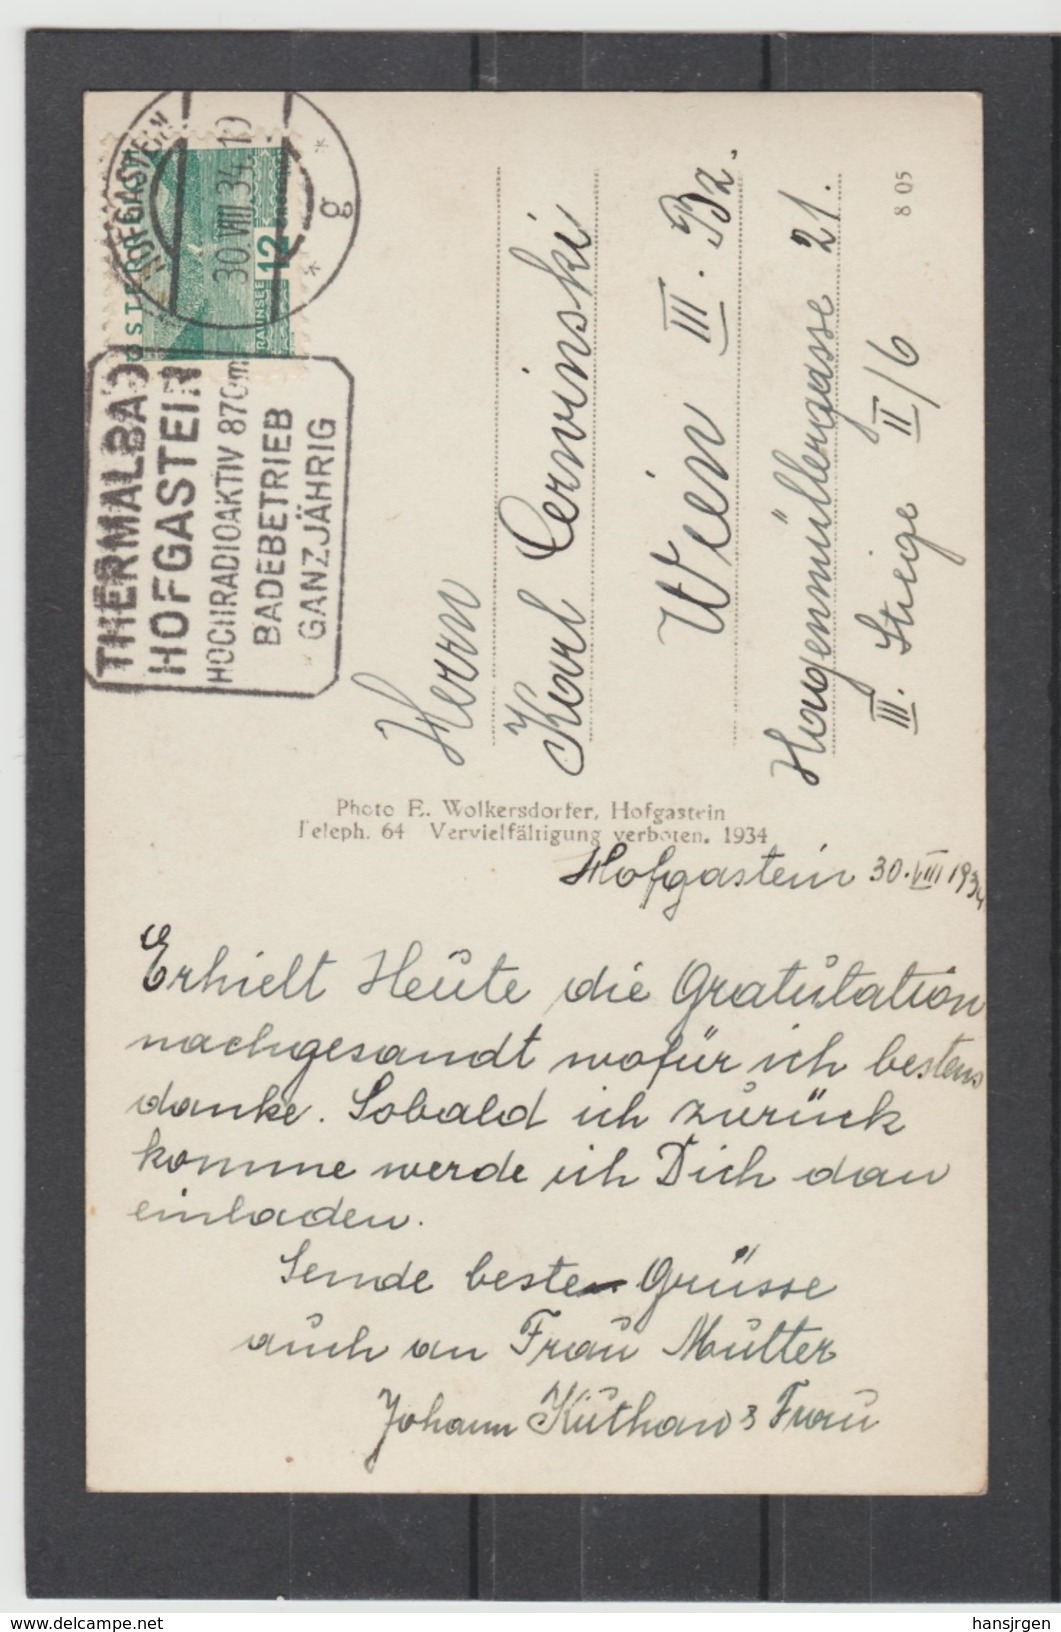 HOFGASTEIN
30.VIII.34.19
* g *
ÖSTERREICH
12
TRAUNSEE
THERMALBAD
HOFGASTEIN
HOCHRADIOAKTIV 870m
BADEBETRIEB
GANZJÄHRIG
Herrn
Karl Cervinski
Wien III. Bz.
Hagenmüllergasse 21.
III. Stiege II/6
8 05
Photo E. Wolkersdorfer, Hofgastein
Teleph. 64 Vervielfältigung verboten. 1934
Hofgastein 30.VIII 1934
Erhielt Heute die Gratulation
nachgesandt wofür ich bestens
danke. Sobald ich zurück
komme werde ich Dich dan
einladen.
Sende beste Grüsse
auch an Frau Mutter
Johann Kuthan & Frau
www.delcampe.net
hansjrgen